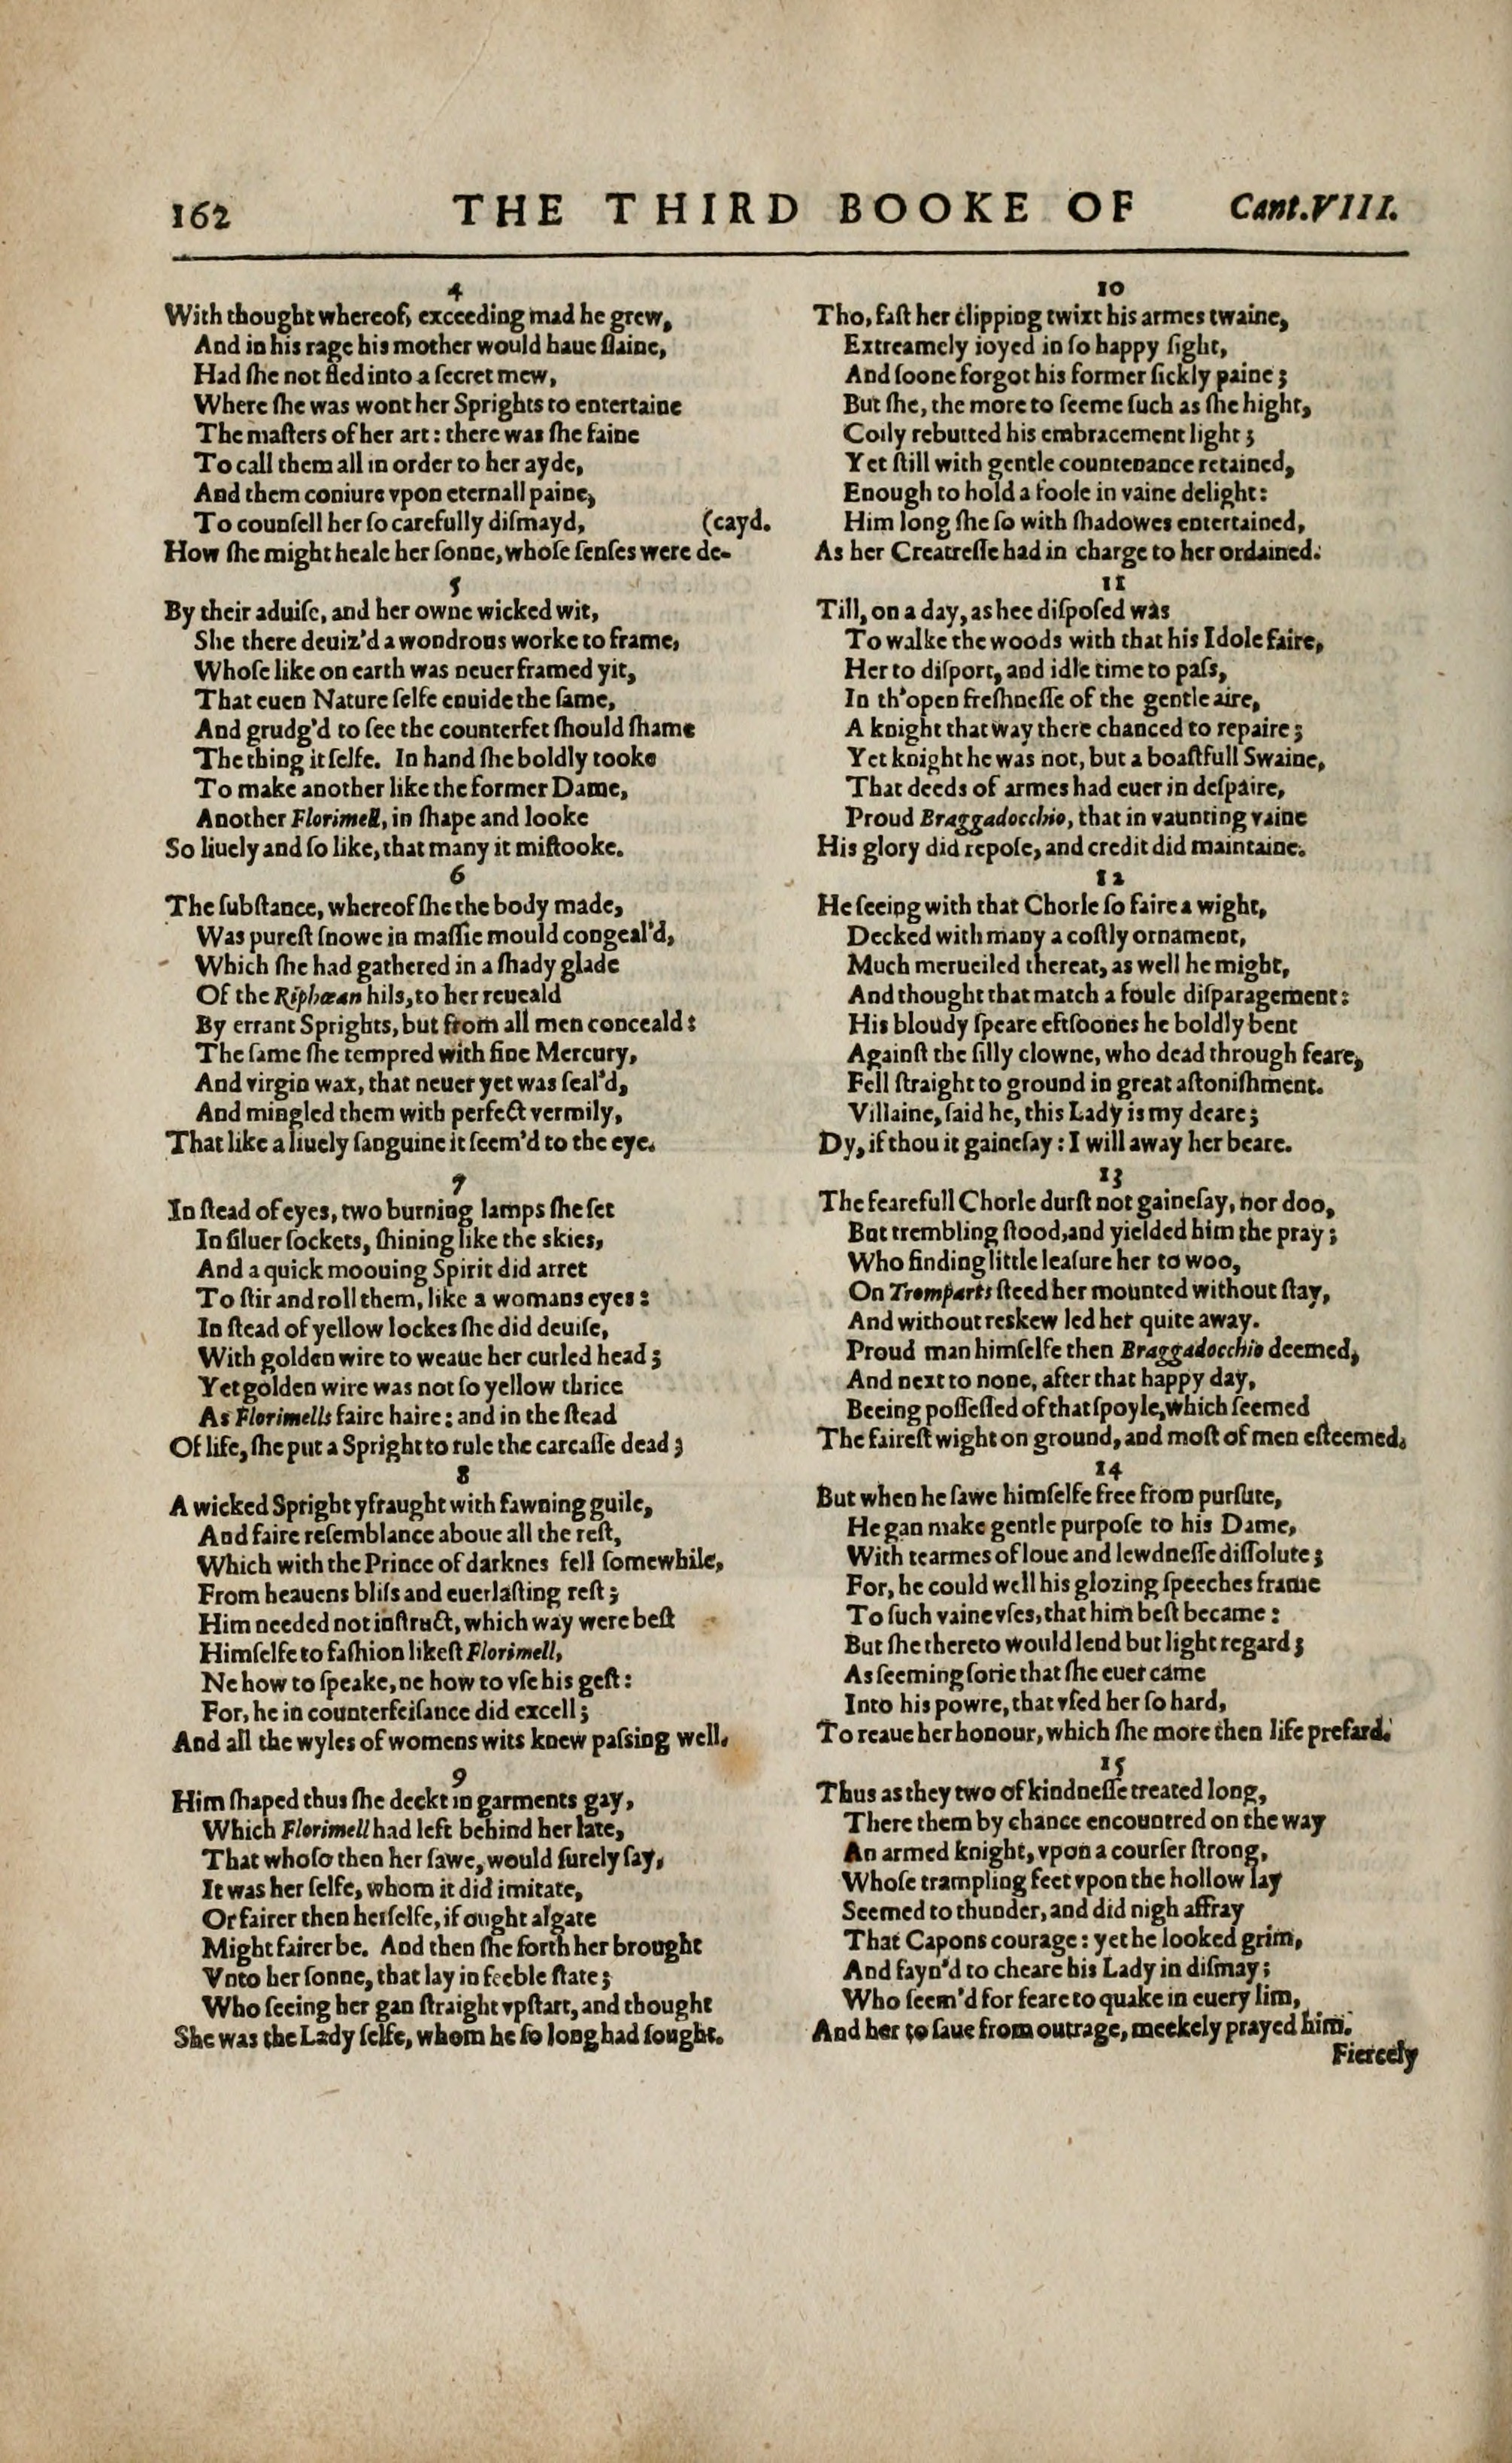 162 THE THIRD BOOKE OF Cant.VIII.
4
With thought whereof, exceeding mad he grew,
And in his rage his mother would haue ſlaine,
Had ſhe not fled into a ſecret mew,
Where ſhe was wont her Sprights to entertaine
The maſters of her art: there was ſhe faine
To call them all in order to her ayde,
And them coniure vpon eternall paine,
To counſell her ſo carefully diſmayd, (cayd.
How ſhe might heale her ſonne, whoſe ſenſes were de-
5
By their aduiſe, and her owne wicked wit,
She there deuiz'd a wondrous worke to frame,
Whoſe like on earth was neuer framed yit,
That euen Nature ſelfe enuide the ſame,
And grudg'd to ſee the counterfet ſhould ſhame
The thing it ſelfe. In hand ſhe boldly tooke
To make another like the former Dame,
Another Florimell, in ſhape and looke
So liuely and ſo like, that many it miſtooke.
6
The ſubſtance, whereof ſhe the body made,
Was pureſt ſnowe in maſſie mould congeal'd,
Which ſhe had gathered in a ſhady glade
Of the Riphæan hils, to her reueald
By errant Sprights, but from all men conceald:
The ſame ſhe tempred with fine Mercury,
And virgin wax, that neuer yet was ſeal'd,
And mingled them with perfect vermily,
That like a liuely ſanguine it ſeem'd to the eye.
7
In ſtead of eyes, two burning lamps ſhe ſet
In ſiluer ſockets, ſhining like the skies,
And a quick moouing Spirit did arret
To ſtir and roll them, like a womans eyes:
In ſtead of yellow lockes ſhe did deuiſe,
With golden wire to weaue her curled head;
Yet golden wire was not ſo yellow thrice
As Florimells faire haire: and in the ſtead
Of life, ſhe put a Spright to rule the carcaſſe dead;
8
A wicked Spright yfraught with fawning guile,
And faire reſemblance aboue all the reſt,
Which with the Prince of darknes fell ſomewhile,
From heauens bliſs and euerlaſting reſt;
Him needed not inſtruct, which way were beſt
Himſelfe to faſhion likeſt Florimell,
Ne how to ſpeake, ne how to vſe his geſt:
For, he in counterfeiſance did excell;
And all the wyles of womens wits knew paſsing well.
9
Him ſhaped thus ſhe deckt in garments gay,
Which Florimell had left behind her late,
That whoſo then her ſawe, would ſurely ſay,
It was her ſelfe, whom it did imitate,
Or fairer then herſelfe, if ought algate
Might fairer be. And then ſhe forth her brought
Vnto her ſonne, that lay in feeble ſtate;
Who ſeeing her gan ſtraight vpſtart, and thought
She was the Lady ſelfe, whom he ſo long had ſought.
10
Tho, faſt her clipping twixt his armes twaine,
Extreamely ioyed in ſo happy ſight,
And ſoone forgot his former ſickly paine;
But ſhe, the more to ſeeme ſuch as ſhe hight,
Coily rebutted his embracement light;
Yet ſtill with gentle countenance retained,
Enough to hold a foole in vaine delight:
Him long ſhe ſo with ſhadowes entertained,
As her Creatreſſe had in charge to her ordained.
11
Till, on a day, as hee diſpoſed was
To walke the woods with that his Idole faire,
Her to diſport, and idle time to paſs,
In th'open freſhneſſe of the gentle aire,
A knight that way there chanced to repaire;
Yet knight he was not, but a boaſtfull Swaine,
That deeds of armes had euer in deſpaire,
Proud Braggadocchio, that in vaunting vaine
His glory did repoſe, and credit did maintaine.
12
He ſeeing with that Chorle ſo faire a wight,
Decked with many a coſtly ornament,
Much merueiled thereat, as well he might,
And thought that match a foule diſparagement:
His bloudy ſpeare eftſoones he boldly bent
Againſt the ſilly clowne, who dead through feare,
Fell ſtraight to ground in great aſtoniſhment.
Villaine, ſaid he, this Lady is my deare;
Dy, if thou it gaineſay: I will away her beare.
13
The fearefull Chorle durſt not gaineſay, nor doo,
But trembling ſtood, and yielded him the pray;
Who finding little leaſure her to woo,
On Tromparts ſteed her mounted without ſtay,
And without reskew led her quite away.
Proud man himſelfe then Braggadocchio deemed,
And next to none, after that happy day,
Beeing poſſeſſed of that ſpoyle, which ſeemed
The faireſt wight on ground, and moſt of men eſteemed.
14
But when he ſawe himſelfe free from purſute,
He gan make gentle purpoſe to his Dame,
With tearmes of loue and lewdneſſe diſſolute;
For, he could well his glozing ſpeeches frame
To ſuch vaine vſes, that him beſt became:
But ſhe thereto would lend but light regard;
As ſeeming ſorie that ſhe euer came
Into his powre, that vſed her ſo hard,
To reaue her honour, which ſhe more then life prefard.
15
Thus as they two of kindneſſe treated long,
There them by chance encountred on the way
An armed knight, vpon a courſer ſtrong,
Whoſe trampling feet vpon the hollow lay
Seemed to thunder, and did nigh affray
That Capons courage: yet he looked grim,
And fayn'd to cheare his Lady in diſmay;
Who ſeem'd for feare to quake in euery lim,
And her to ſaue from outrage, meekely prayed him.
Fiercely